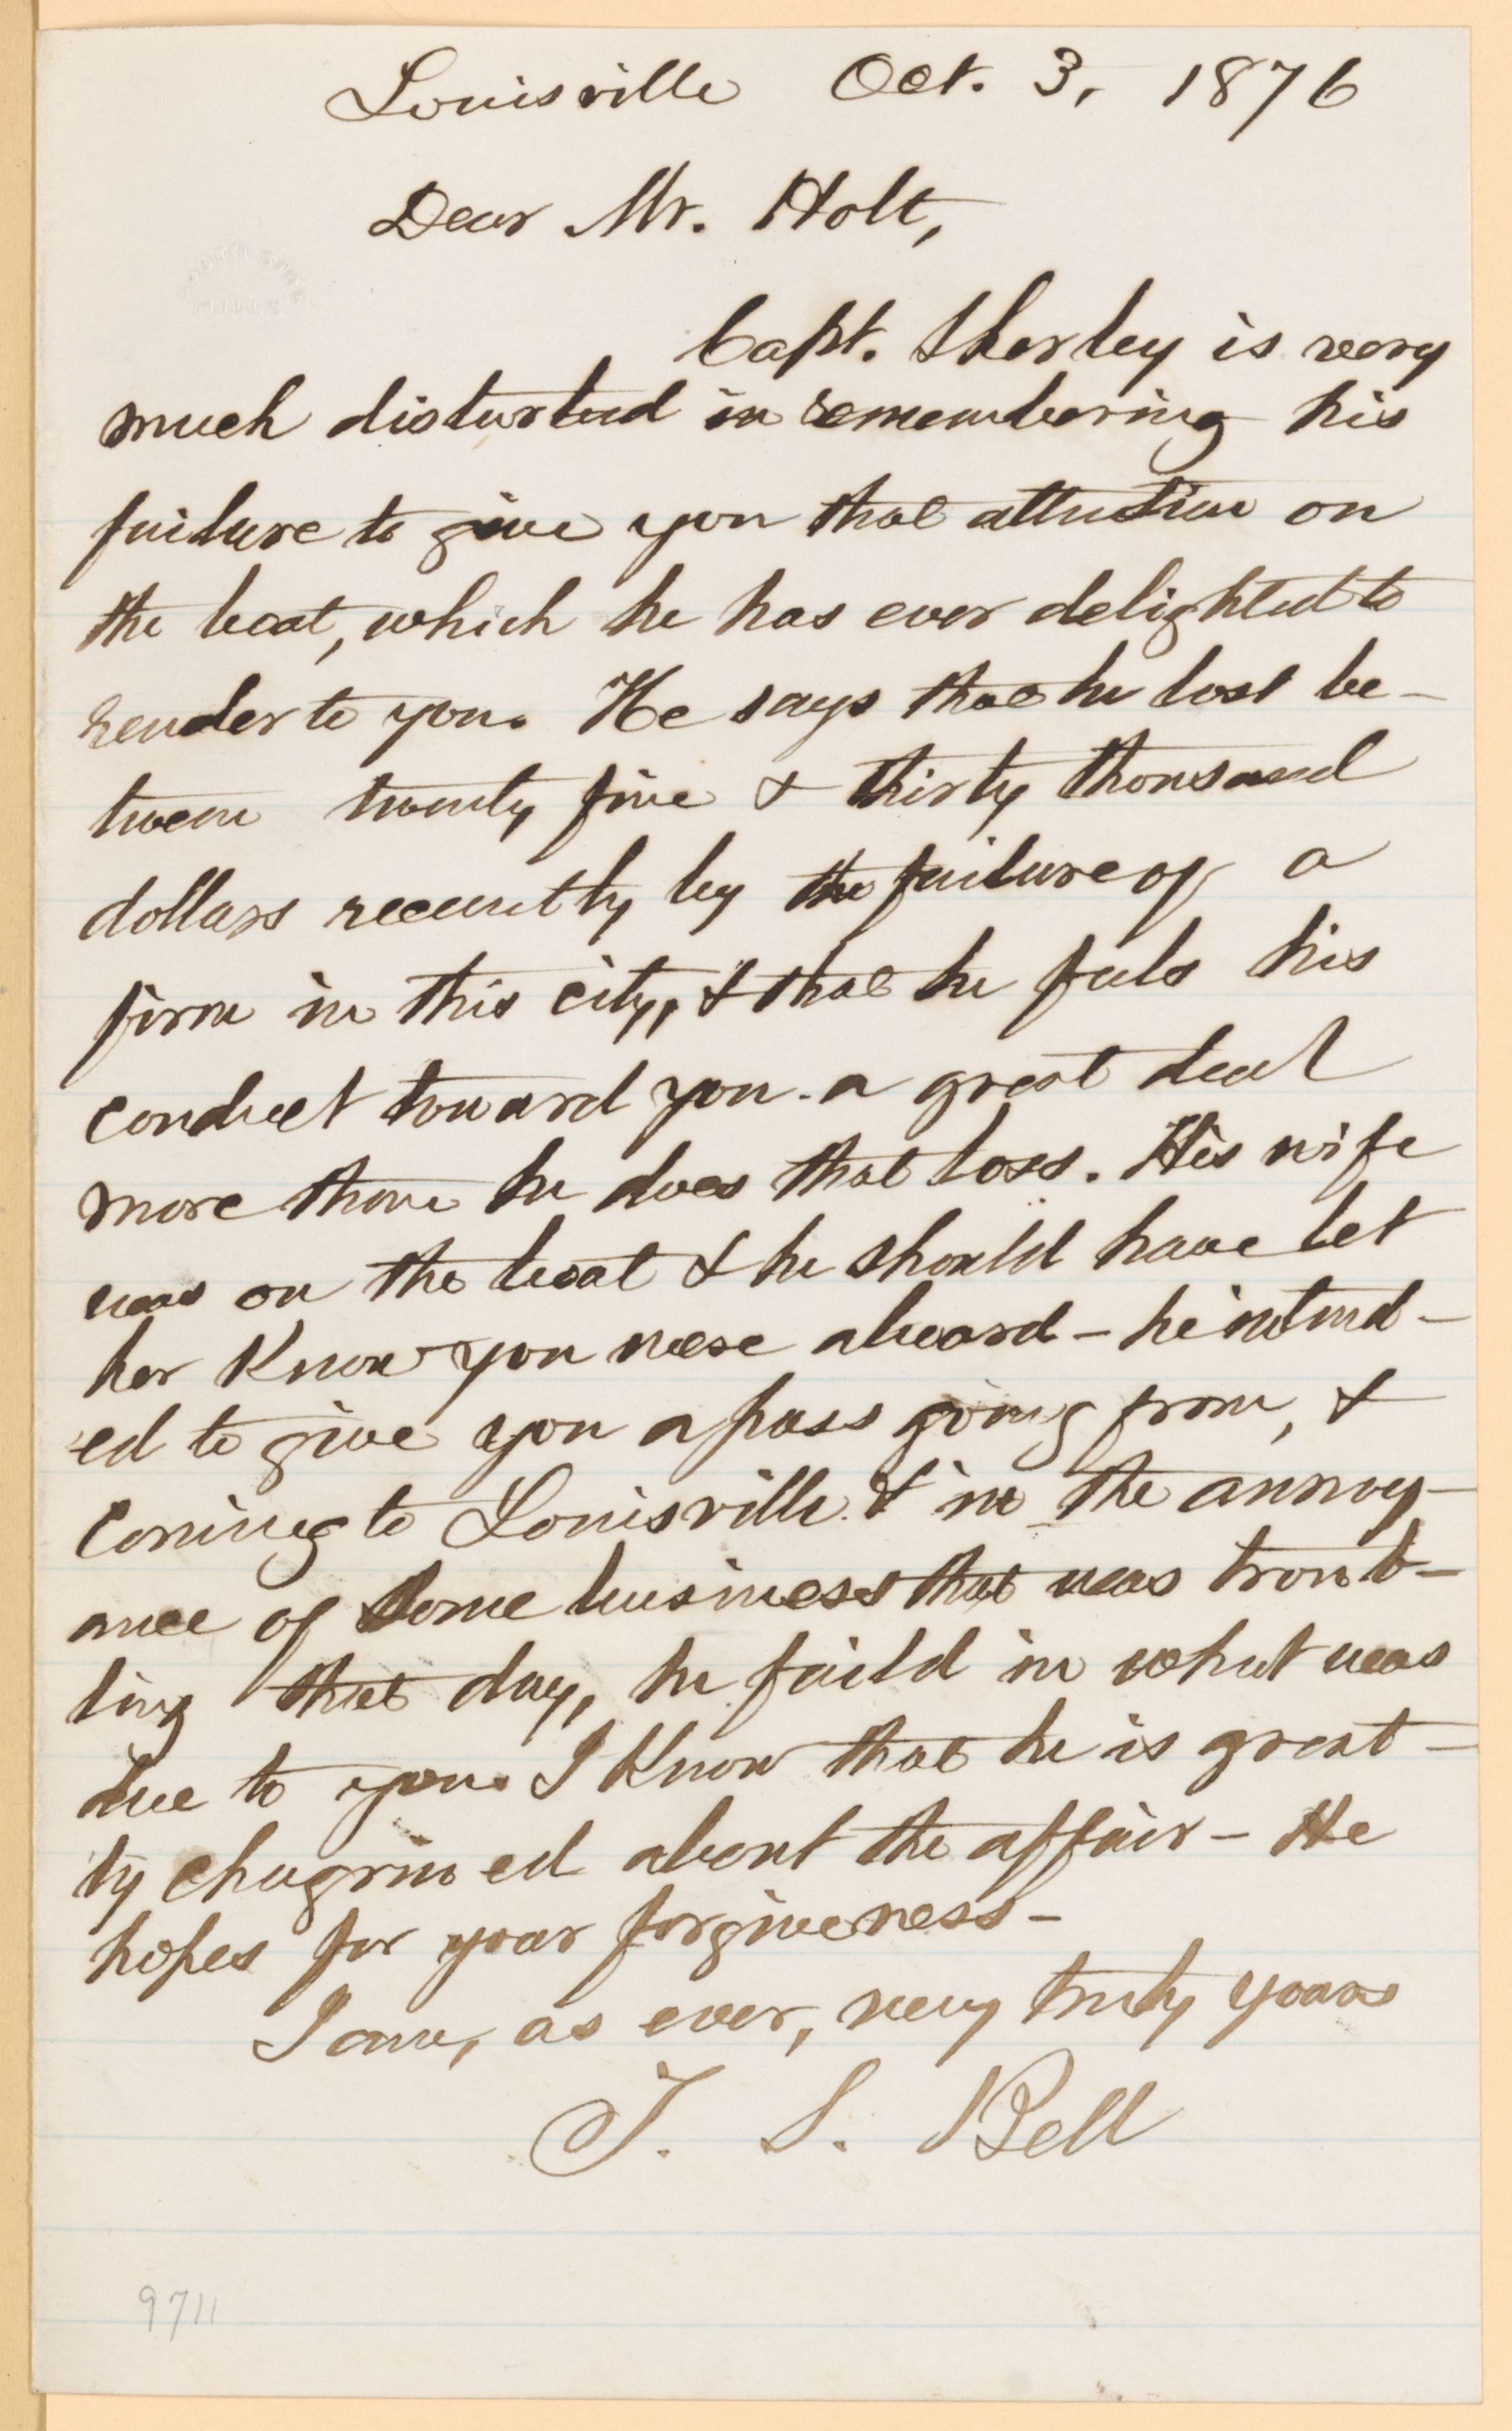 Louisville Oct. 3, 1876
Dear Mr. Holt,
Capt. Sherley is very
much disturbed in remembering his
failure to give you that attention on
the boat, which he has ever delighted to
render to you. He says that he lost be-
tween twenty five & thirty thousand
dollars recently by the failure of a
firm in this city, & that he feels his
conduct toward you a great deal
more than he does that loss. His wife
was on the boat & he should have let
her know you were aboard – he intend-
ed to give you a pass going from, &
coming to Louisville. & in the annoy-
ance of some business that was troub-
ling that day, he faild in what was
due to you. I know that he is great-
ly chagrined about the affair – He
hopes for your forgiveness –
I am, as ever, very truly yours
T. S. Bell
9711